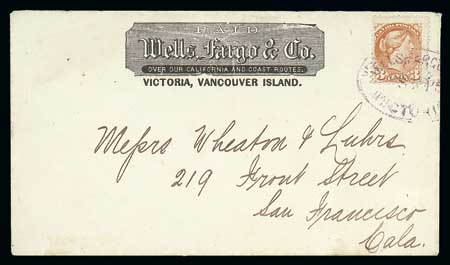 PAID
Wells, Fargo & Co.
OVER OUR CALIFORNIA AND COAST ROUTES.
VICTORIA, VANCOUVER ISLAND.
Messrs Wheaton & Luhrs
219 Front Street
San Francisco
Cala.